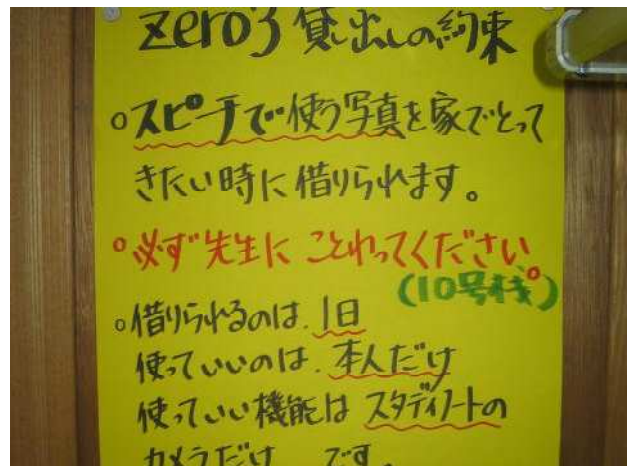 zero3 貸し出しの約束
○スピーチで使う写真を家でとって
きたい時に借りられます。
○必ず先生にことわってください。
(10号機)
○借りられるのは、1日
使っていいのは、本人だけ
使っていい機能はスタディノートの
カメラだけ です。